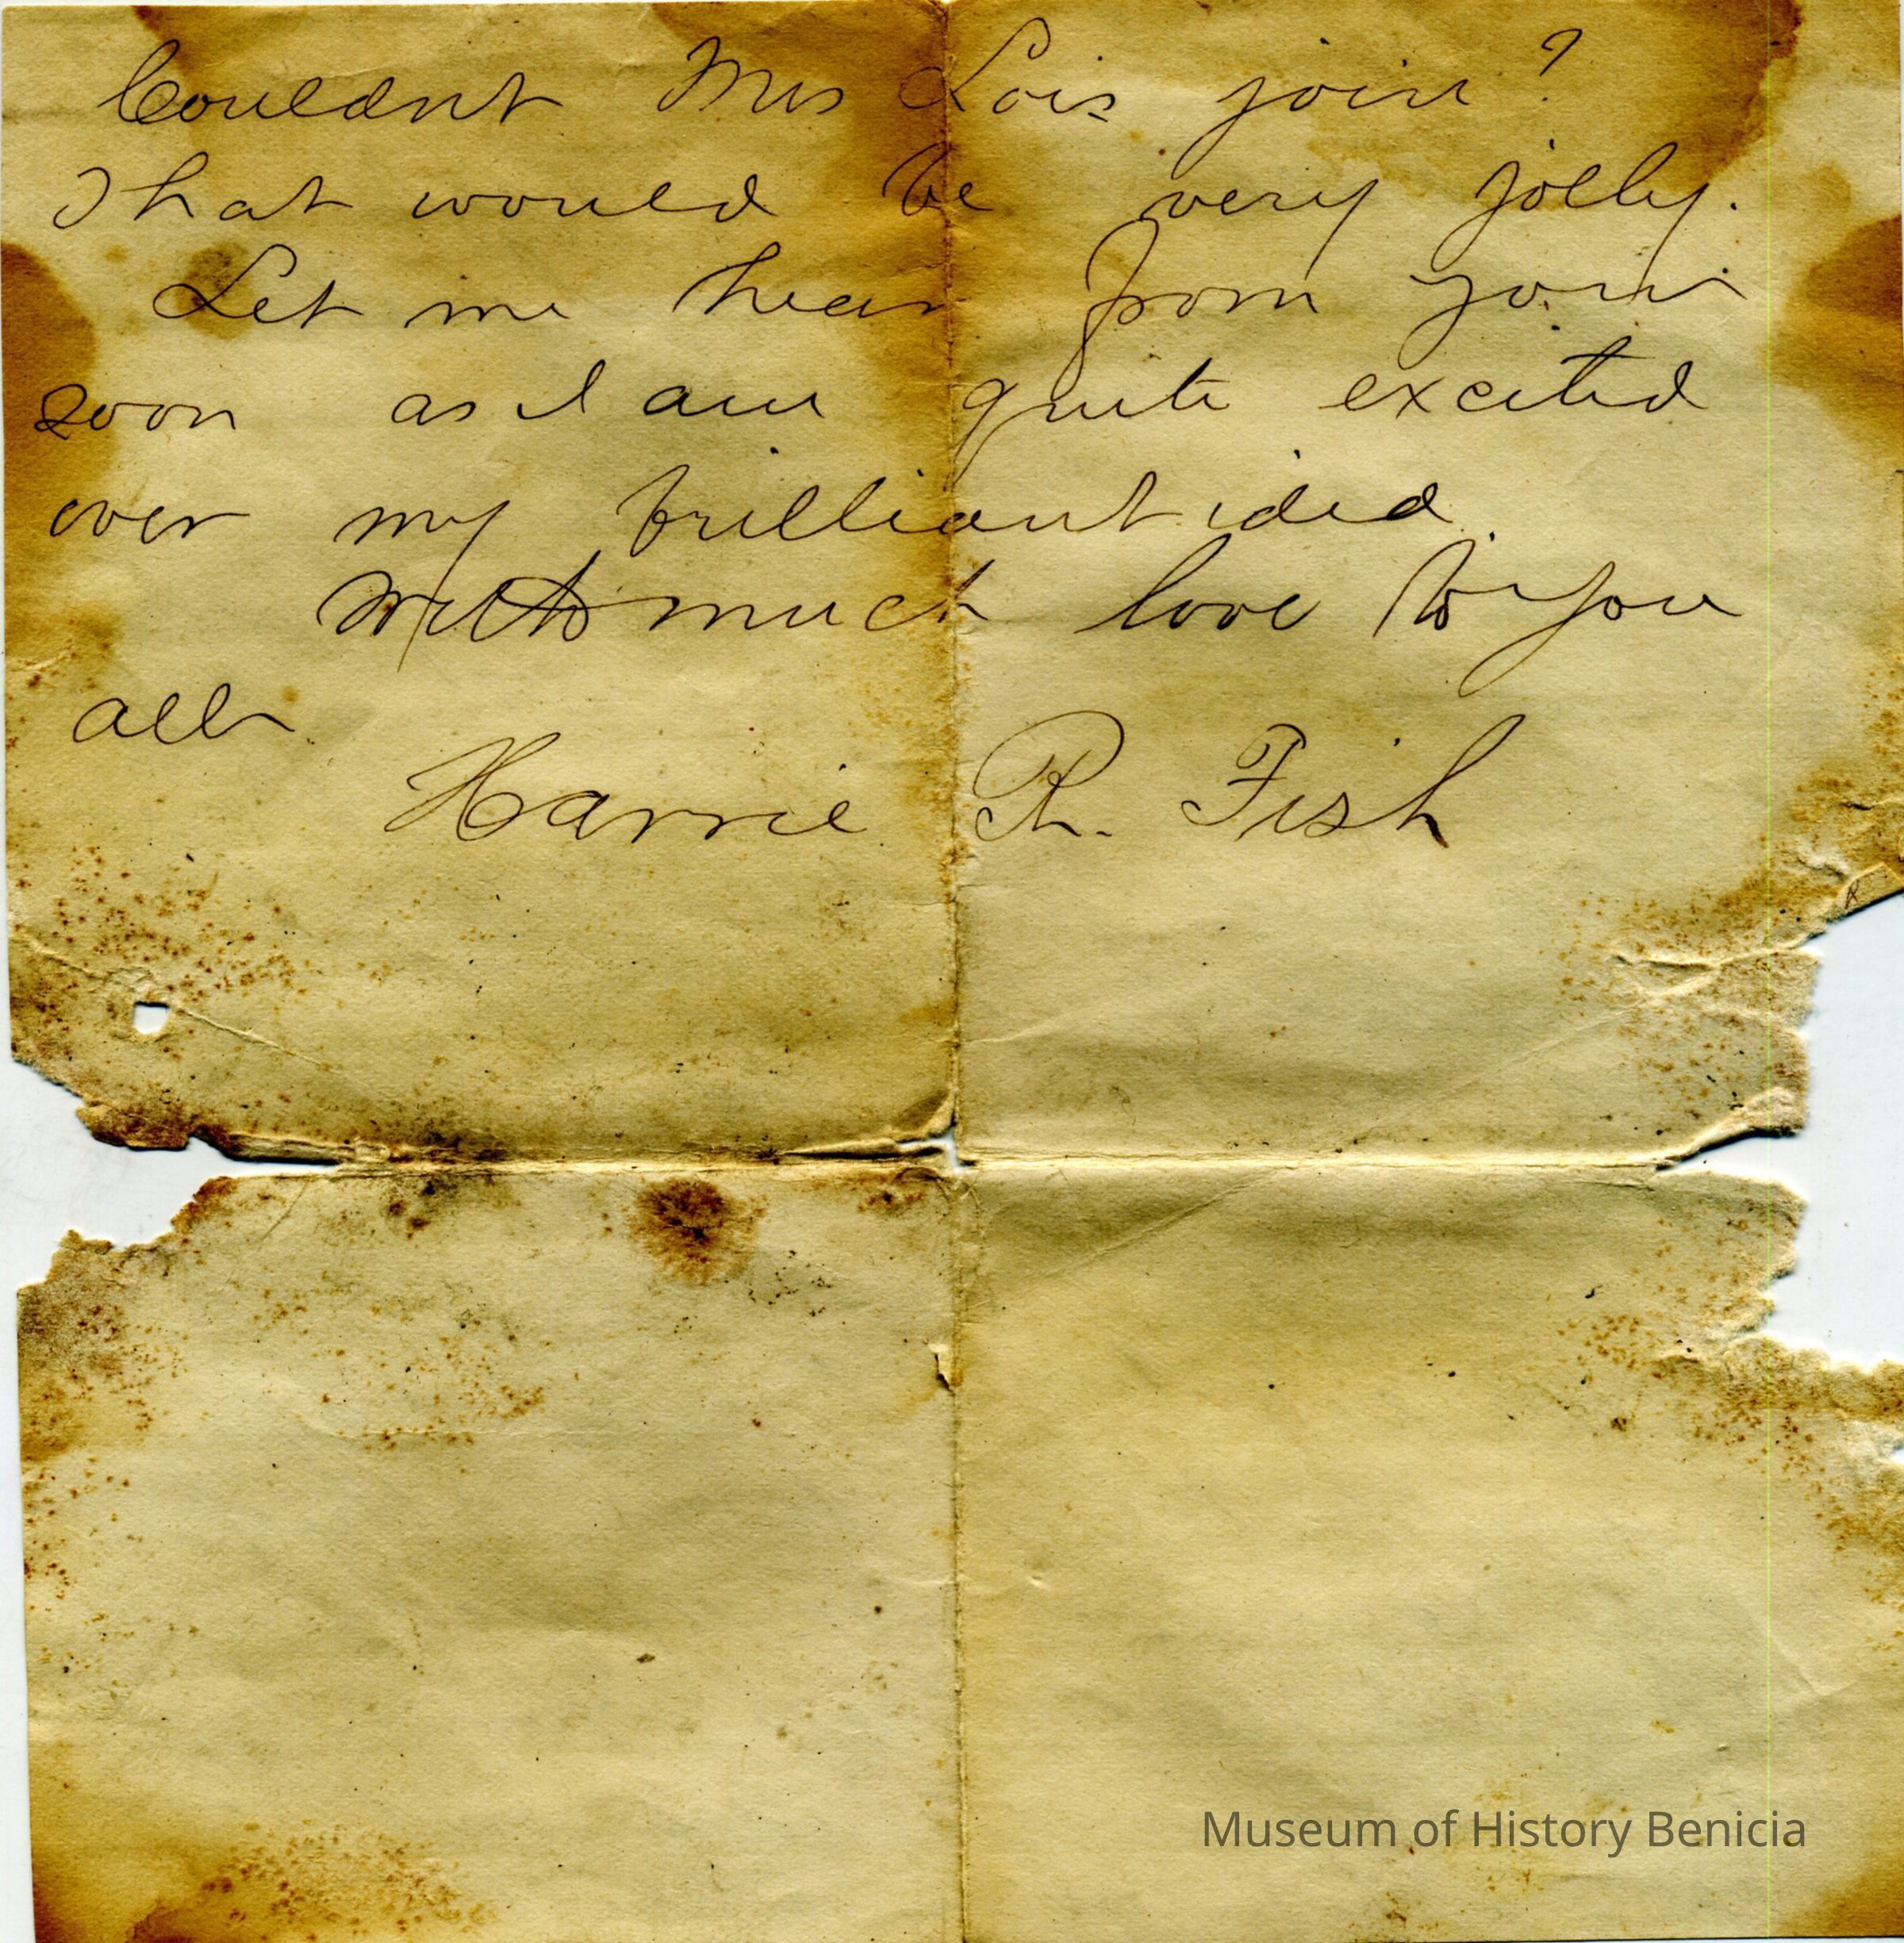 Couldnt Mrs Lois join?
That would be very jolly.
Let me hear from you
soon as I am quite excited
over my brilliant idea.
With much love to you
all.
Harrie R. Fish
Museum of History Benicia